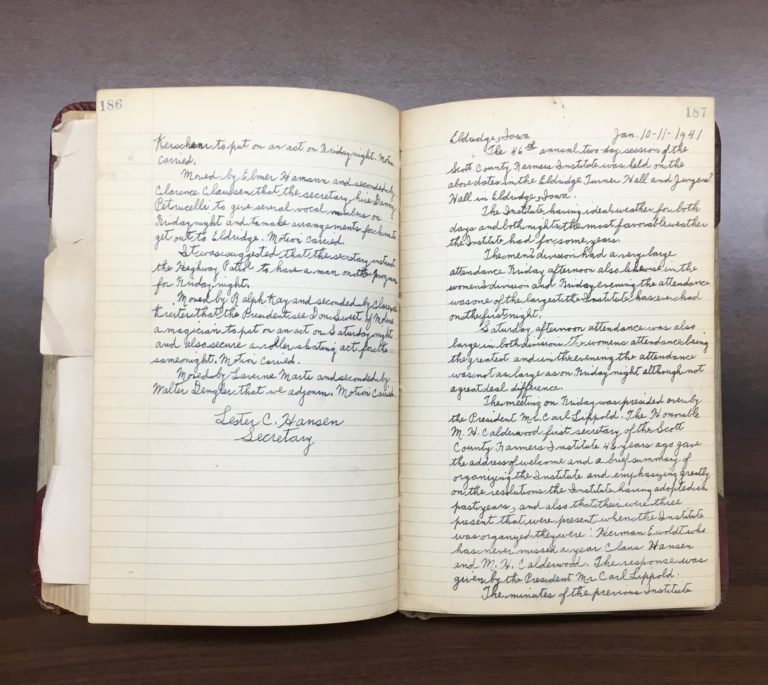 186
to put on an act on Friday night. Motion
carried.
Moved by Elmer Hamann and seconded by
Clarence Claussen that the secretary hire Danny
Petrucelli to give several vocal numbers on
Friday night and to make arrangements for him to
get out to Eldridge. Motion carried.
It was suggested that the secretary instruct
the Highway Patrol to have a man on the program
for Friday night.
Moved by Ralph Kay and seconded by Clarence
that the President see Don Sweet of
a magician to put on an act on Saturday night
and also secure a roller skating act for the
same night. Motion carried.
Moved by Laverne Marti and seconded by
Walter Dengler that we adjourn. Motion carried.
Lester C. Hansen
Secretary
187
Eldridge, Iowa Jan. 10-11-1941
The 46th annual two day session of the
Scott County Farmers Institute was held on the
above dates in the Eldridge Turner Hall and
Hall in Eldridge, Iowa.
The Institute having ideal weather for both
days and both nights the most favorable weather
the Institute had for some years.
The men's division had a very large
attendance Friday afternoon also likewise in the
women's division and Friday evening the attendance
was one of the largest the Institute has ever had
on the first night.
Saturday afternoon attendance was also
large in both division the womens attendance being
the greatest and in the evening the attendance
was not as large as on Friday night although not
a great deal difference.
The meeting on Friday was presided over by
the President Mr. Carl Lippold. The Honorable
M. H. Calderwood first secretary of the Scott
County Farmers Institute 46 years ago gave
the address of welcome and a brief summary of
organizing the Institute and emphasizing greatly
on the resolutions the Institute having adopted in
past years, and also that their were three
present that were present when the Institute
was organized they were: Herman Ewoldt who
has never missed a year Claus Hansen
and M. H. Calderwood. The response was
given by the President Mr. Carl Lippold.
The minutes of the previous Institute